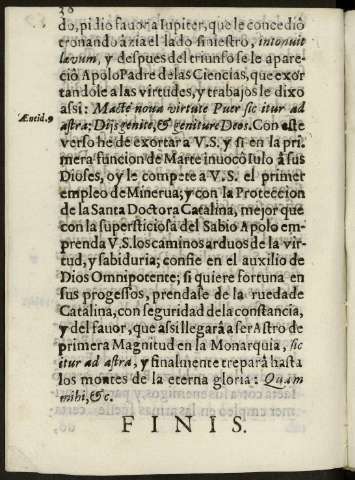 30
do, pidio fauor a Iupiter, que le concediò
tronando àzia el lado siniestro, intonuit
lævum, y despues del triunfo se le apare-
ciò Apolo Padre de las Ciencias, que exor
tandole a las virtudes, y trabajos le dixo
assi: Macte noua virtute Puer sic itur ad
Æneid. 9
astra; Dijs genite, & geniture Deos. Con este
verso he de exortar a V.S. y si en la pri
mera funcion de Marte inuocò Iulo à sus
Dioses, oy le compete a V.S. el primer
empleo de Minerua; y con la Proteccion
de la Santa Doctora Catalina, mejor que
con la supersticiosa del Sabio Apolo em-
prenda V.S. los caminos arduos de la vir-
tud, y sabiduria; confie en el auxilio de
Dios Omnipotente; si quiere fortuna en
sus progessos, prendase de la rueda de
Catalina, con seguridad de la constancia,
y del fauor, que assi llegarà a ser Astro de
primera Magnitud en la Monarquia, sic
itur ad astra, y finalmente treparà hasta
los montes de la eterna gloria: Quam
mihi, &c.
FINIS.